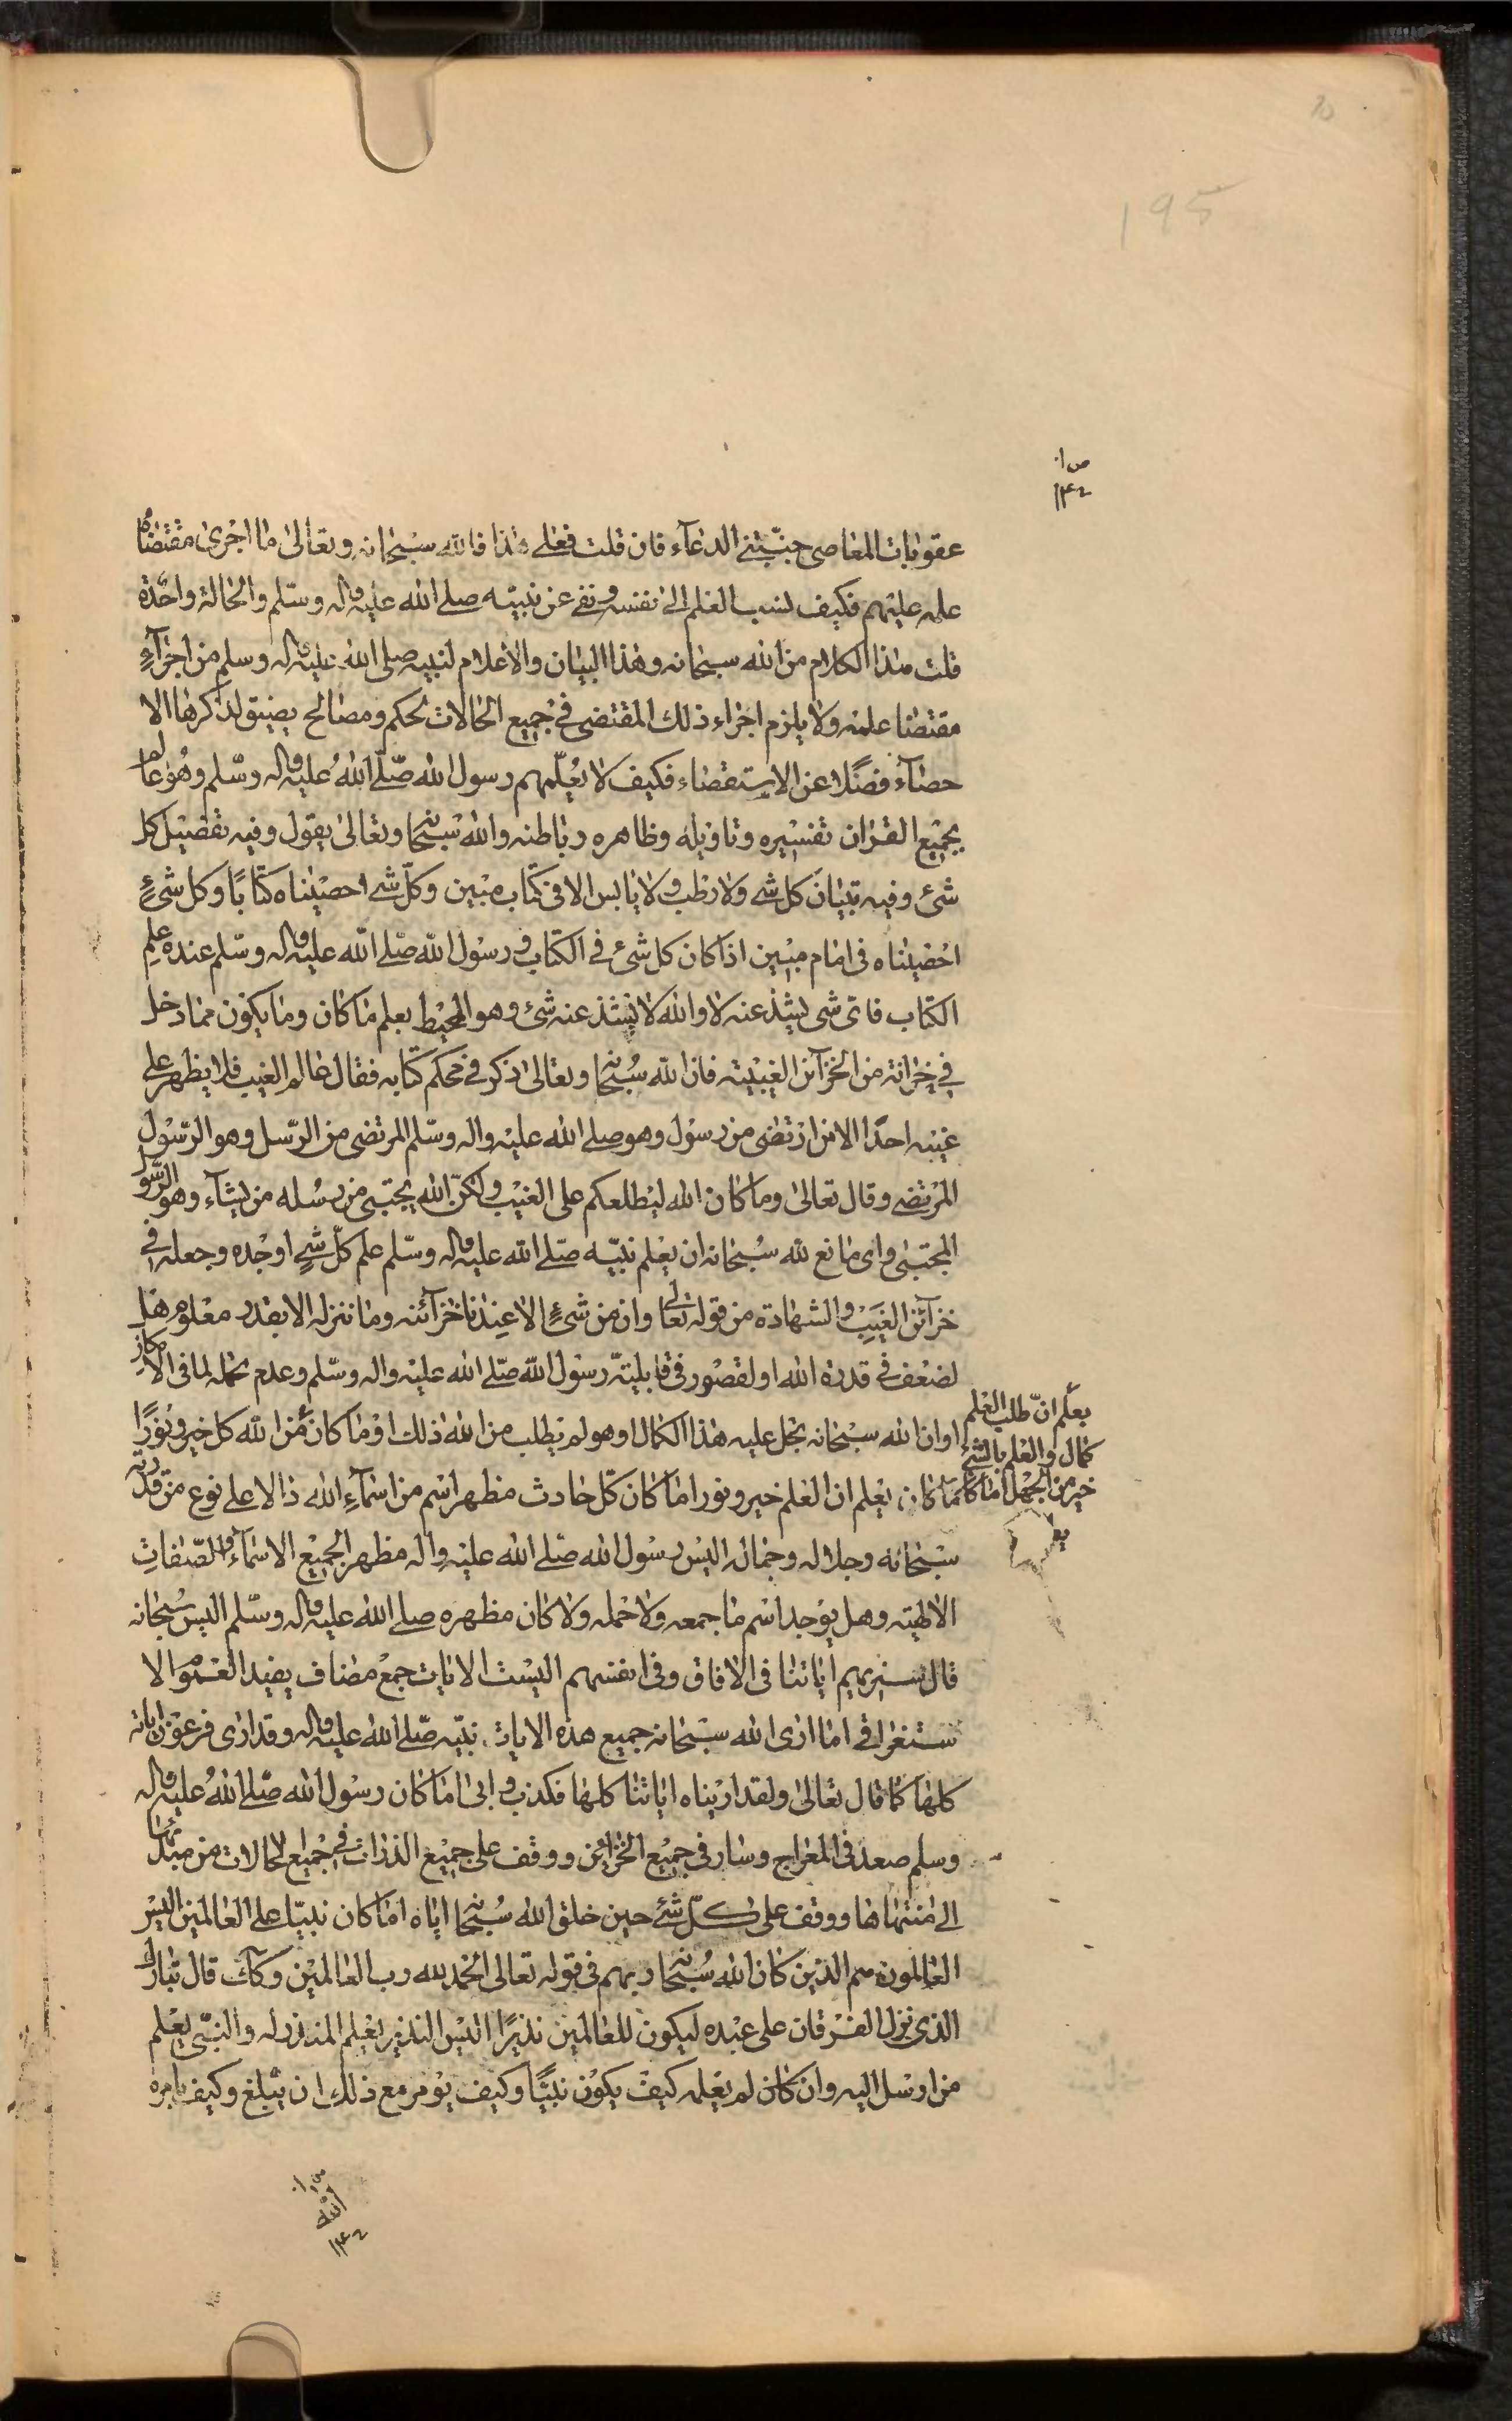 195
عقوبات المعاصى جنبتنى الدعآء فان قلت فعلى هذا فالله سبحانه وتعالى ما اجرى مقتضى
علمه عليهم فكيف نسب العلم الى نفسه ونفى عن نبيّه صلى الله عليه واله وسلّم والحالة واحدة
قلت هذا الكلام من الله سبحانه وهذا البيان والاعلام لنبيه صلى الله عليه واله وسلم من اجرآء
مقتضا علمه ولا يلزم اجراء ذلك المقتضى في جميع الحالات لحكم ومصالح يضيق لذكرها الا
حصآء فضلا عن الاستقصاء فكيف لا يعلّمهم رسول الله صلّى الله عليه واله وسلم وهو عالم
بجميع القران تفسيره وتاويله وظاهره وباطنه والله سبحانه وتعالى يقول وفيه تفصيل كل
شئ وفيه تبيان كل شى ولا رطب ولا يابس الا فى كتاب مبين وكلّ شى احصيناه كتابًا وكل شئ
احصيناه فى امام مبين اذا كان كل شئ في الكتاب ورسول الله صلى الله عليه واله وسلم عنده علم
الكتاب فاى شى يشذ عنه لا والله لا يشذ عنه شئ وهو المحيط بعلم ما كان وما يكون مما دخل
في خزانة من الخزآئن الغيبيّة فان الله سبحانه وتعالى ذكر في محكم كتابه فقال عالم الغيب فلا يظهر على
غيبه احدًا الا من ارتضى من رسول وهو صلى الله عليه واله وسلم المرتضى من الرسل وهو الرسول
المرتضى وقال تعالى وما كان الله ليطلعكم على الغيب ولكنّ الله يجتبى من رسله من يشآء وهو الرسول
المجتبى واى مانع لله سبحانه ان يعلم نبيّه صلى الله عليه واله وسلم علم كلّ شئ اوجده وجعله في
خزآئن الغيب والشهادة من قوله تعالى وان من شئ الا عندنا خزآئنه وما ننزله الا بقدر معلوم هل
لضعف في قدرة الله او لقصور في قابليّة رسول الله صلى الله عليه واله وسلم وعدم تحمله لما فى الامكان
او ان الله سبحانه بخل عليه هذا الكمال او هو لم يطلب من الله ذلك او ما كان من الله كل خير ونورًا
يعلم انّ طلب العلم
كمال والعلم بالشئ
خير من الجهل اما كان
اما كان يعلم ان العلم خير ونور اما كان كلّ حادث مظهر اسم من اسمآء الله ذالا على نوع من قدرته
سبحانه وجلاله وجماله اليس رسول الله صلى الله عليه واله مظهر الجميع الاسمآء والصفات
الالهيّة وهل يوجد اسم ما جمعه ولا حمله ولا كان مظهره صلى الله عليه واله وسلم اليس سبحانه
قال سنريهم اياتنا فى الافاق وفى انفسهم اليست الايات جمع مضاف يفيد العموم الا
ستغراق اما ارى الله سبحانه جميع هذه الايات نبيّه صلى الله عليه واله وقد ارى فرعون اياته
كلها كما قال تعالى ولقد اريناه اياتنا كلها فكذب وابى اما كان رسول الله صلى الله عليه واله
وسلم صعد فى المعراج وسار فى جميع الخزآئن ووقف على جميع الذرات في جميع الحالات من مبدئها
الى منتهاها ووقف على كلّ شئ حين خلق الله سبحانه اياه اما كان نبيّا على العالمين اليس
العالمون هم الذين كان الله سبحانه ربهم فى قوله تعالى الحمد لله رب العالمين وكك قال تبارك
الذى نزل الفرقان على عبده ليكون للعالمين نذيرًا اليس النذير يعلم المنذر له والنبى يعلم
من ارسل اليه وان كان لم يعلمه كيف يكون نبيًّا وكيف يؤمر مع ذلك ان يبلغ وكيف يامره